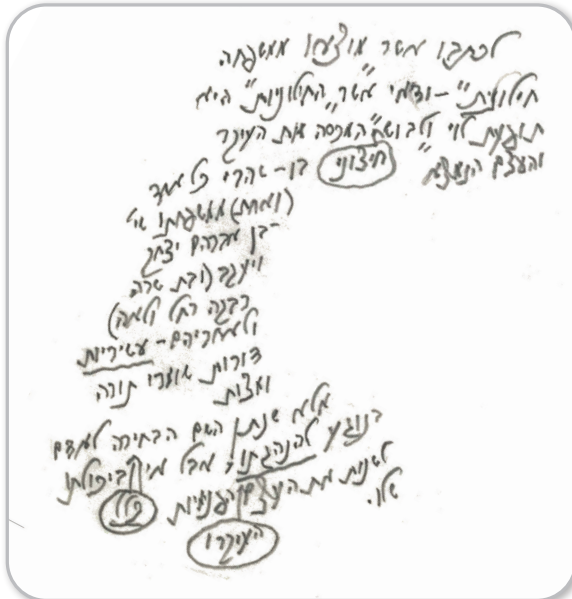 לכתבו אשר מוצאו ממשפחה
חילונית" – ודאי אשר "החילוניות" היא
תוגנת לוי ולבוש" המכסה את העיקר
והעצם הנמצא" חיצוני בו – שהרי כל אחד
(ואחת) ממשפחתו של
בן אברהם יצחק
ויעקב (ובת שרה
רבקה רחל ולאה)
ולאחריהם – עשיריות
דורות שומרי תורה
ומצות
אלא שנתן השם הבחירה לאדם
בנוגע להנהגתו, אבל אין ביכולתו כלל
לשנות את העצם והפנימיות העיקרו
שלו.